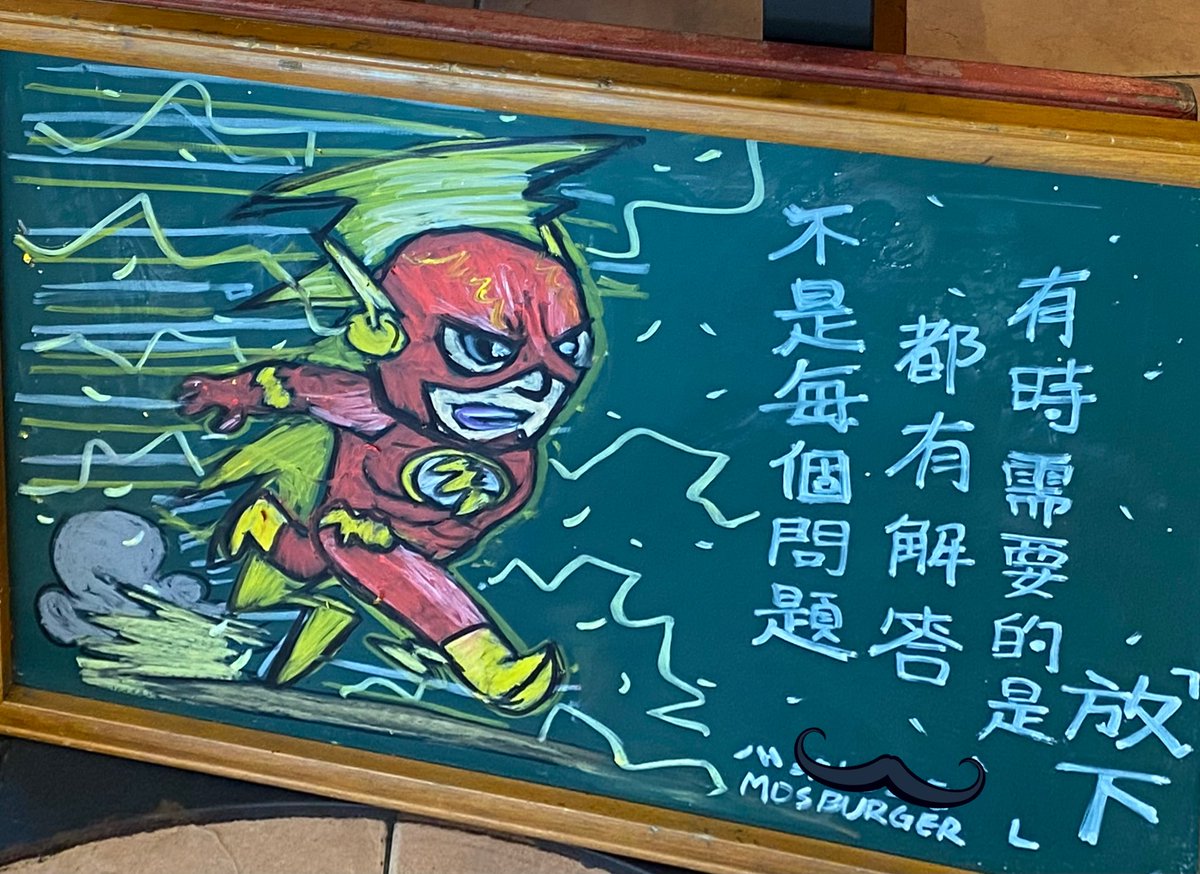 不是每個問題
都有解答
有時需要的是
「放下」
MOSBURGER